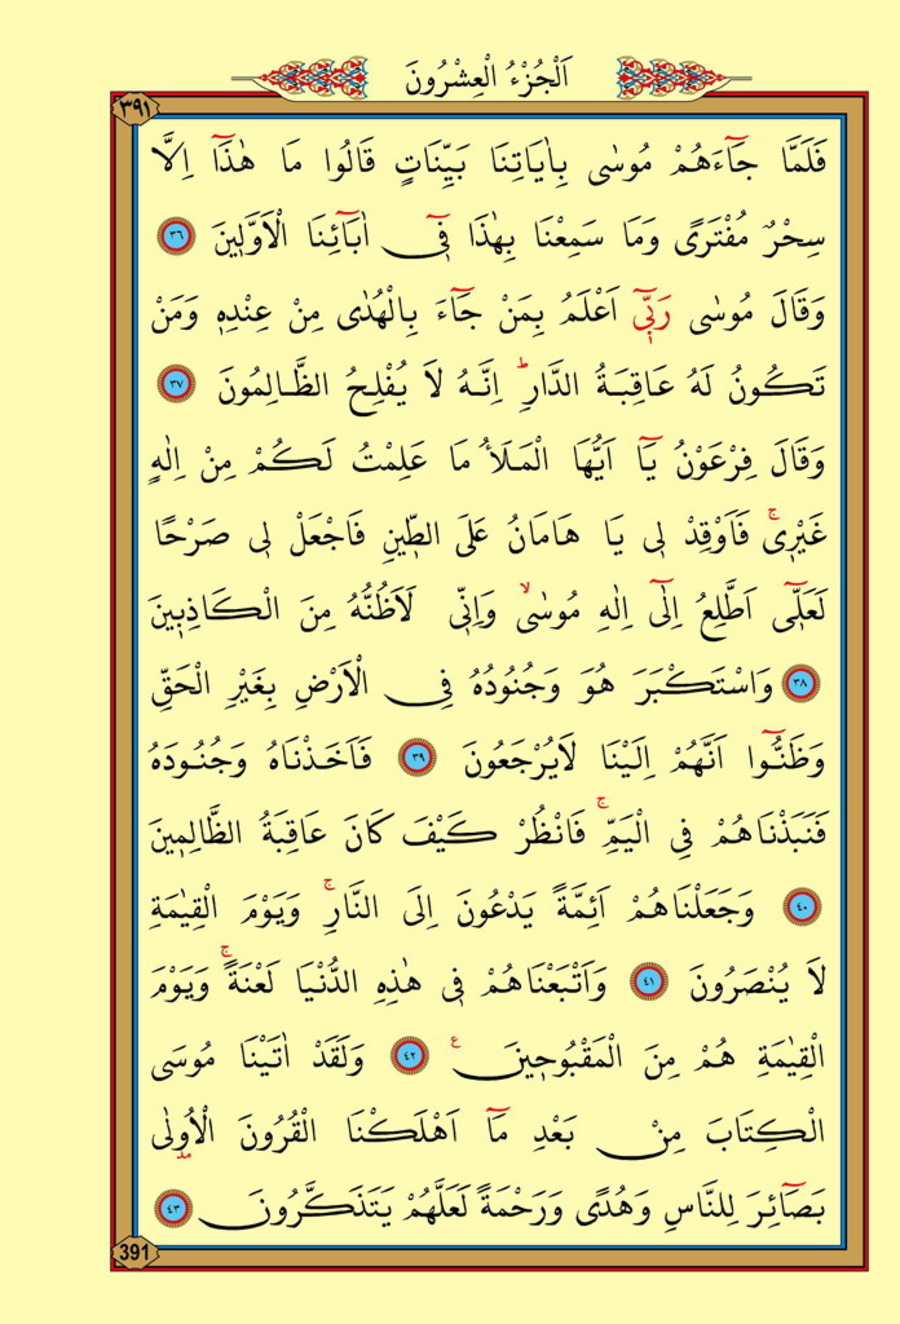 اَلْجُزْءُ الْعِشْرُونَ
٣٩١
فَلَمَّا جَٓاءَهُمْ مُوسٰى بِاٰيَاتِنَا بَيِّنَاتٍ قَالُوا مَا هٰذَٓا اِلَّا
سِحْرٌ مُفْتَرًى وَمَا سَمِعْنَا بِهٰذَا ف۪ٓي اٰبَٓائِنَا الْاَوَّل۪ينَ ٣٦
وَقَالَ مُوسٰى رَبّ۪ٓي اَعْلَمُ بِمَنْ جَٓاءَ بِالْهُدٰى مِنْ عِنْدِه۪ وَمَنْ
تَكُونُ لَهُ عَاقِبَةُ الدَّارِۜ اِنَّهُ لَا يُفْلِحُ الظَّالِمُونَ ٣٧
وَقَالَ فِرْعَوْنُ يَٓا اَيُّهَا الْمَلَأُ مَا عَلِمْتُ لَكُمْ مِنْ اِلٰهٍ
غَيْر۪يۚ فَاَوْقِدْ ل۪ي يَا هَامَانُ عَلَى الطّ۪ينِ فَاجْعَلْ ل۪ي صَرْحًا
لَعَلّ۪ٓي اَطَّلِعُ اِلٰٓى اِلٰهِ مُوسٰىۙ وَاِنّ۪ي لَاَظُنُّهُ مِنَ الْكَاذِب۪ينَ
٣٨ وَاسْتَكْبَرَ هُوَ وَجُنُودُهُ فِي الْاَرْضِ بِغَيْرِ الْحَقِّ
وَظَنُّٓوا اَنَّهُمْ اِلَيْنَا لَايُرْجَعُونَ ٣٩ فَاَخَذْنَاهُ وَجُنُودَهُ
فَنَبَذْنَاهُمْ فِي الْيَمِّۚ فَانْظُرْ كَيْفَ كَانَ عَاقِبَةُ الظَّالِم۪ينَ
٤٠ وَجَعَلْنَاهُمْ اَئِمَّةً يَدْعُونَ اِلَى النَّارِۚ وَيَوْمَ الْقِيٰمَةِ
لَا يُنْصَرُونَ ٤١ وَاَتْبَعْنَاهُمْ ف۪ي هٰذِهِ الدُّنْيَا لَعْنَةًۚ وَيَوْمَ
الْقِيٰمَةِ هُمْ مِنَ الْمَقْبُوح۪ينَ ع ٤٢ وَلَقَدْ اٰتَيْنَا مُوسَى
الْكِتَابَ مِنْ بَعْدِ مَٓا اَهْلَكْنَا الْقُرُونَ الْاُو۫لٰى
بَصَٓائِرَ لِلنَّاسِ وَهُدًى وَرَحْمَةً لَعَلَّهُمْ يَتَذَكَّرُونَ ٤٣
391